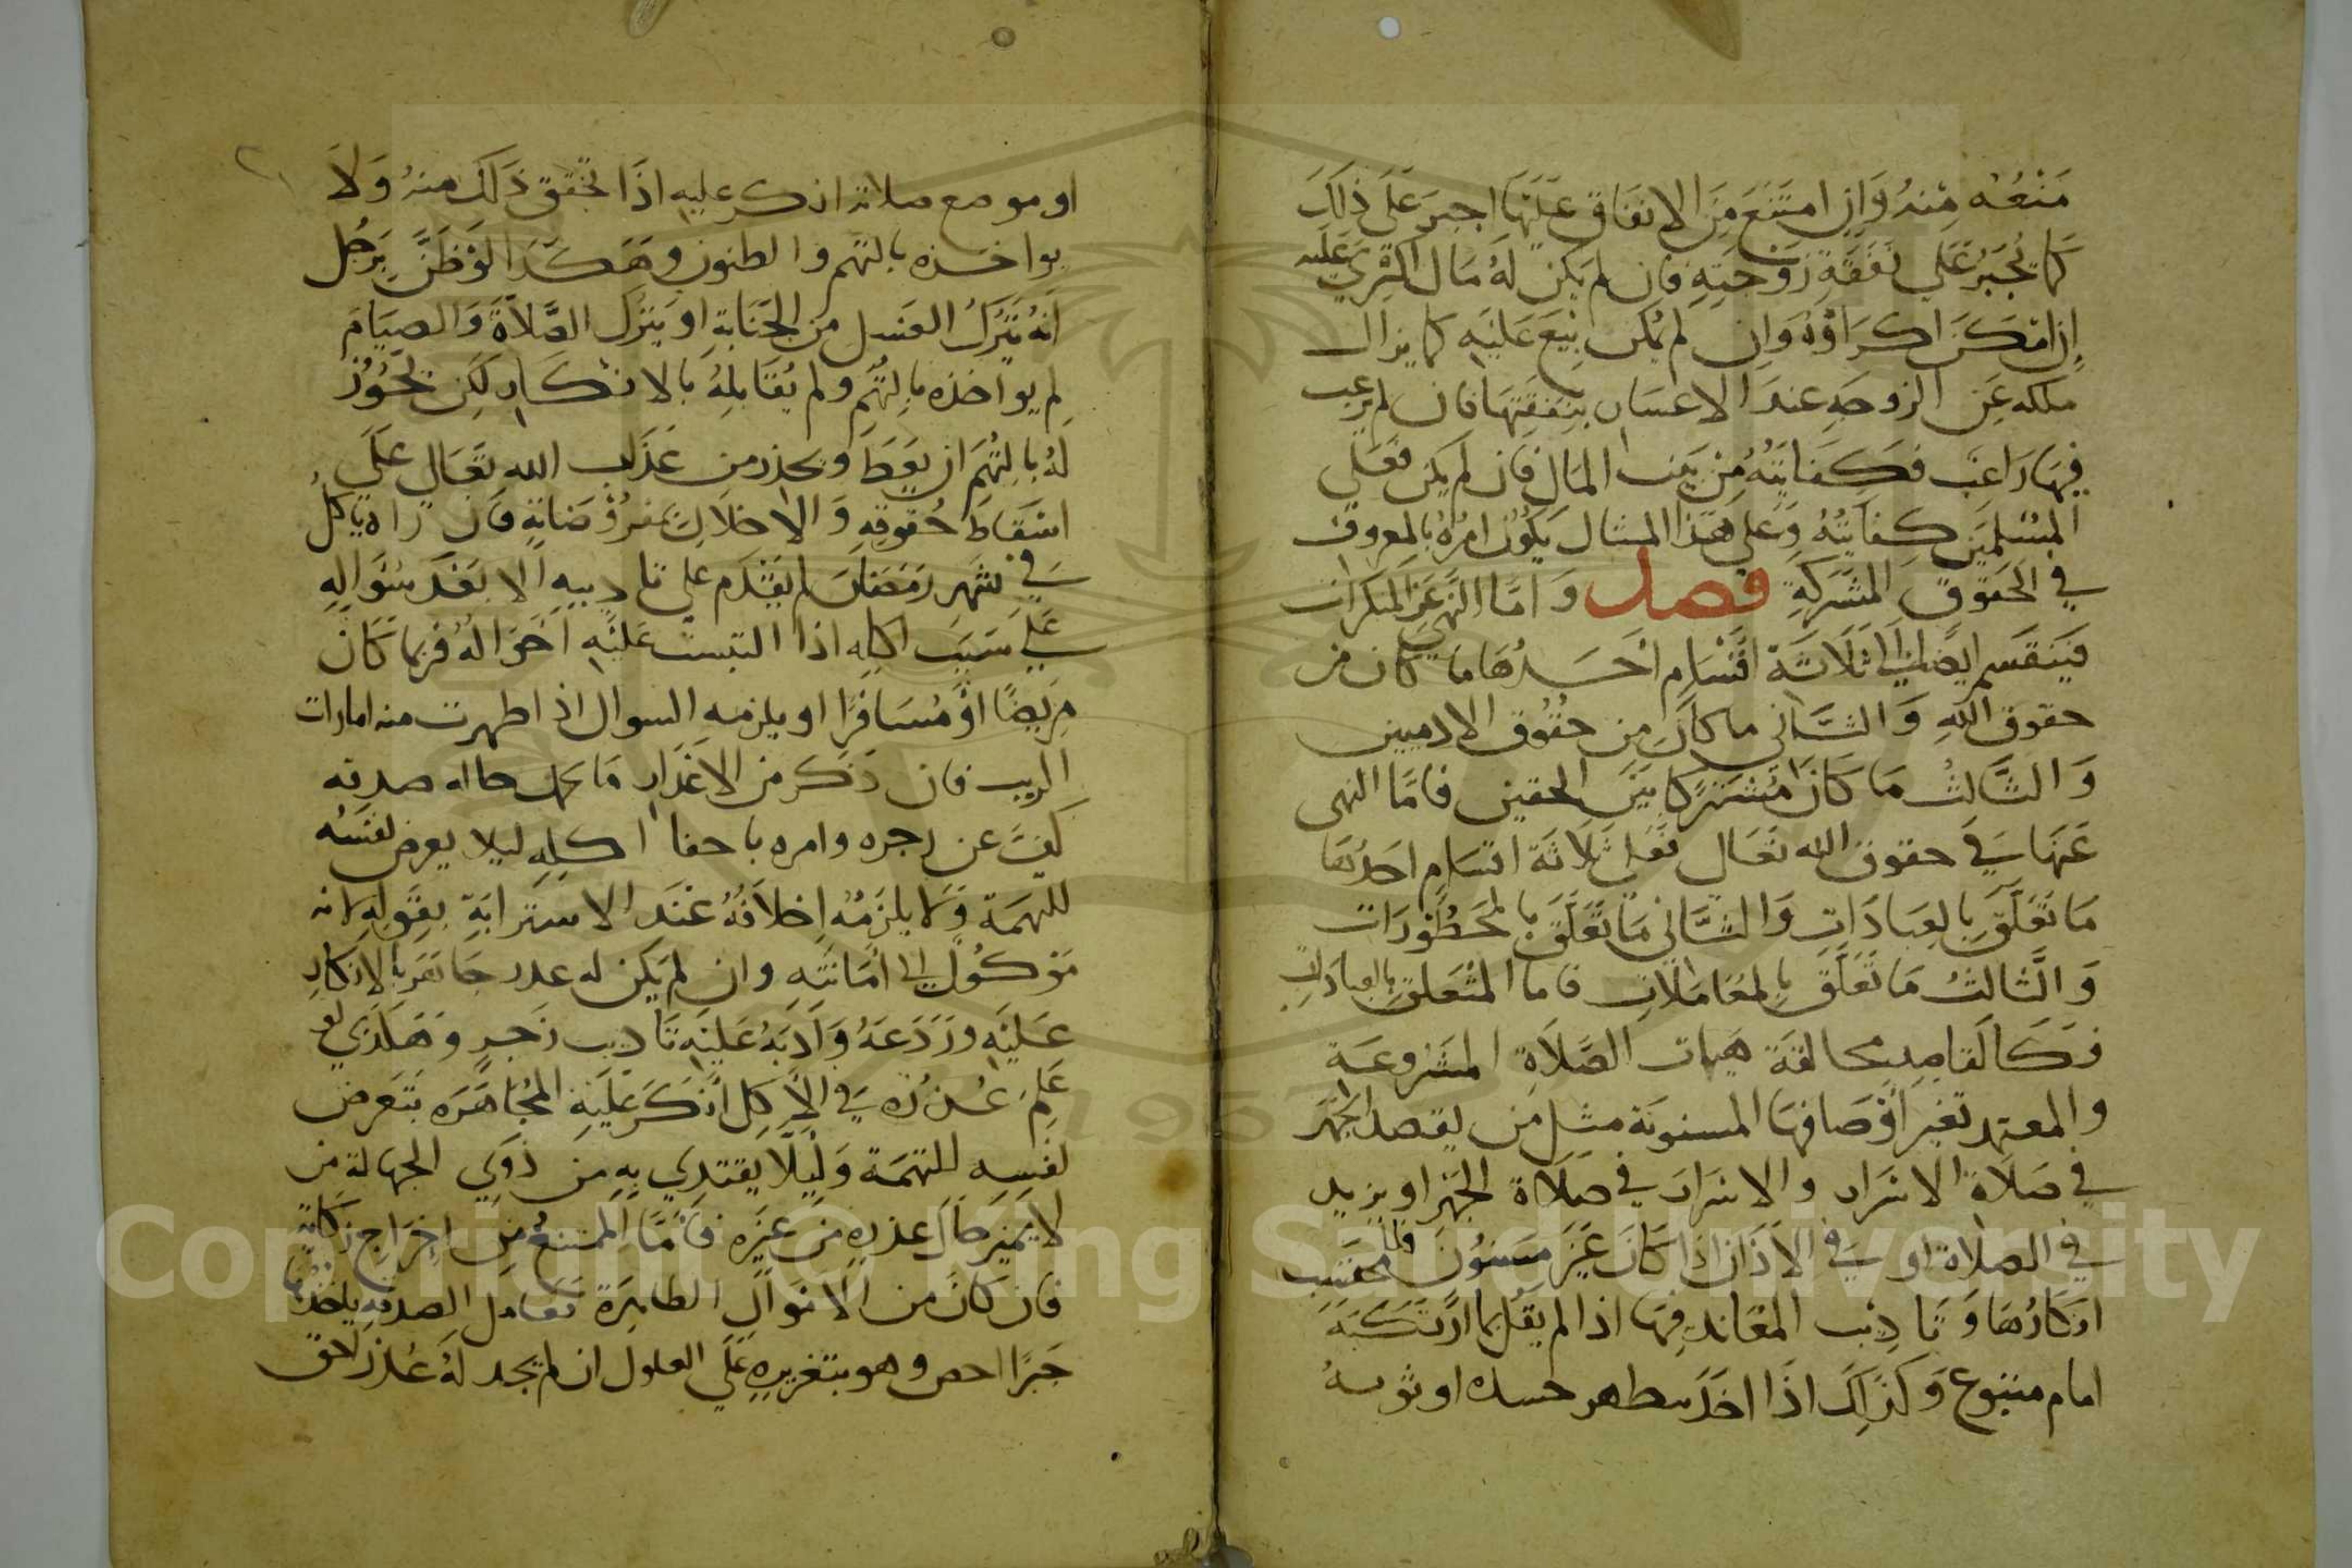 مَنْعُه مِنْهُ وَاِن امتَنَع مِنَ الانفَاق عَلَيَها اجبرَ عَلَى ذلكَ
كما يُجبَرُ عَلى نفقَةِ زَوْجَتِهِ فان لم يكن لهُ مَال اكتري عَليه
اِن امْكَنَ اكرَاؤهُ وَاِن لم يُمكن بِيعَ عَلَيْهِ كما يزال
ملكه عَن الزوجَه عند الاعسَار بنَفقتِهَا فان لم يرغب
فِيهَا رَاغب فكفايتهُ مِنْ بَيت المَال فان لم يكن فعَلى
المُسْلمَين كفايَتهُ وَعَلى هَذا المثال يَكُون امرُهُ بالمعروف
في الحقوق المشتركَةِ فصل وَامّا النّهي عَن المنكرات
فَينقَسم ايضًا الي ثَلاثَة اقْسَامِ احَدُهَا ما كان من
حقوق اللهِ وَالثّاني ما كانَ مِن حقُوق الادميين
وَالثّالثُ مَا كَانَ مُشْترَكا بيَن الحقين فامَّا النهى
عَنهَا في حقوق الله تعَال فَعَلى ثَلاثَة اقسَامِ احَدُهَا
مَا تَعَلّقَ بالعِبَادَاتِ وَالثّاني مَا تَعَلّقَ بالمحظُورَات
وَالثّالثُ مَا تَعَلّق بالمعَاملات فاما المتْعَلق بالعبادات
فَكَالقاصِدِ مخالفَة هيات الصَّلَاةِ المشرُوعَة
والمعتمد تغير اوْصَافها المسنونَة مثل من يقصد الجَهْر
في صَلاةِ الاسْرَار والاسْرَارَ في صَلَاة الجَهْر او يزيد
في الصلاة او في الاَذان اذكارًا غَيَر مَسنونَ فللمحتسب
انكارُهَا وَتا دِيْب المعَاند فِيهَا اذا لم يَقُل بما ارْتكبَهُ
امام متبوع وَكذلك اذَا اخَلّ بتطهير جسده او ثوبه
او موضع صلاته انكر عليه اذَا تحقق ذَلك منهُ وَلَا
يواخذه بالتهَم والظنون وهَكَذا لوْ ظَنَّ بِرَجُل
اَنهُ يَتركُ الغسل من الجَنَابَةِ او يَترك الصَّلاَةَ وَالصيَامَ
لم يواخذه بالتُّهَمِ ولم يُقَابلهُ بالانكار لكِن يَجُوزُ
لهُ بالتُهَم ان يَعِظ ويحذر من عَذَاب الله تعَال عَلَى
اسْقَاطَ حُقوقِهِ وَالاخلَال بمفرُوْضَاتِهِ فَان رَاه ياكُلُ
في شهر رَمَضَان لم يقْدم على تا ديبهِ الا بَعْدَ سُؤَالِهِ
عَلى سَبَب اكلِه اذا التبست عَليْهِ احْوَالهُ فرُبمَا كَان
مَريضًا اوْ مُسَافرًا او يلزمه السوال اذا ظهرت منه امارات
الريب فان ذكر من الاعْذَار مَا يحتمله حاله صدقه
كَفَ عن زجره وامره باخفا اكلِهِ ليلا يعرض نفسَه
للتهمَة وَلا يلزَمُه اِحْلَافُهُ عنْدَ الاسترَابَةِ بِقَولِهِ لانه
مَوْكُوْل الى امَانَتِهِ وان لم يكن له عذر جَاهَر بالانكَارِ
عَليْهِ ورَدَعَهُ وَأدّبَهُ عَليْهِ تَا دِيب زجرٍ وَهَكَذَي لو
عَلِمَ عُذرُهُ في الاَكل انْكَرَ عَليْهِ المُجَاهَرَه بتعَرض
نفسِه للتهمَة وَلِيَلّا يَقتدي بِهِ مِن ذَوي الجهالة من
لَا يُميّز حَالَ عذره مِن غَيْره فَامَّا المُمْتنعُ مِن اخِرَاج زَكَاةٍ
فان كَانَ من الاَموَال الظاهِرَة فعامل الصدقه ياخُذها
جَبْرًا اخص وهو بتعْزيرهِ عَلَى الغلول ان لم يجد لهُ عُذرٌ احق